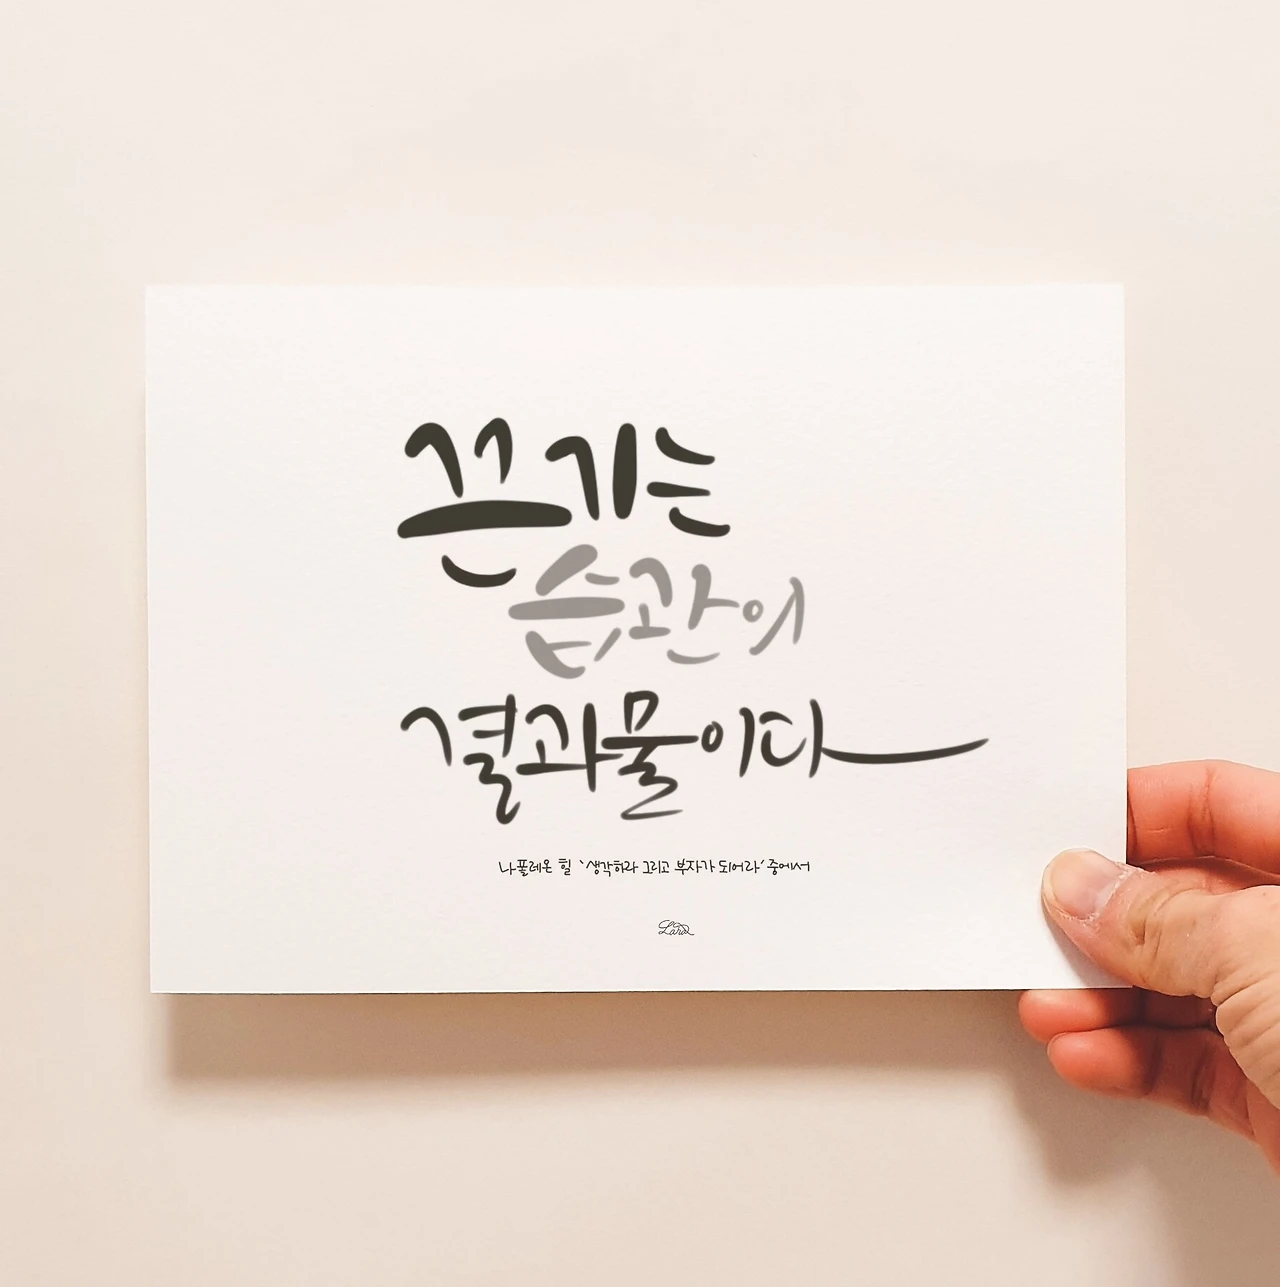 끈기는
습관의
결과물이다
나폴레온 힐 '생각하라 그리고 부자가 되어라' 중에서
Lara